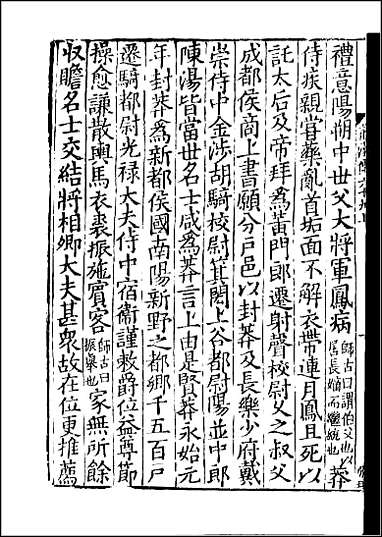 禮意陽朔中世父大將軍鳳病師古曰謂伯父也以居長嫡而繼統也莽
侍疾親嘗藥亂首垢面不解衣帶連月鳳且死以
託太后及帝拜爲黃門郎遷射聲校尉久之叔父
成都侯商上書願分戶邑以封莽及長樂少府戴
崇侍中金涉胡騎校尉箕閎上谷都尉陽並中郎
陳湯皆當世名士咸爲莽言上由是賢莽永始元
年封莽爲新都侯國南陽新野之都鄉千五百戶
遷騎都尉光祿大夫侍中宿衛謹敕爵位益尊節
操愈謙散輿馬衣裘振施賓客師古曰振舉也家無所餘
收贍名士交結將相卿大夫甚衆故在位更推薦